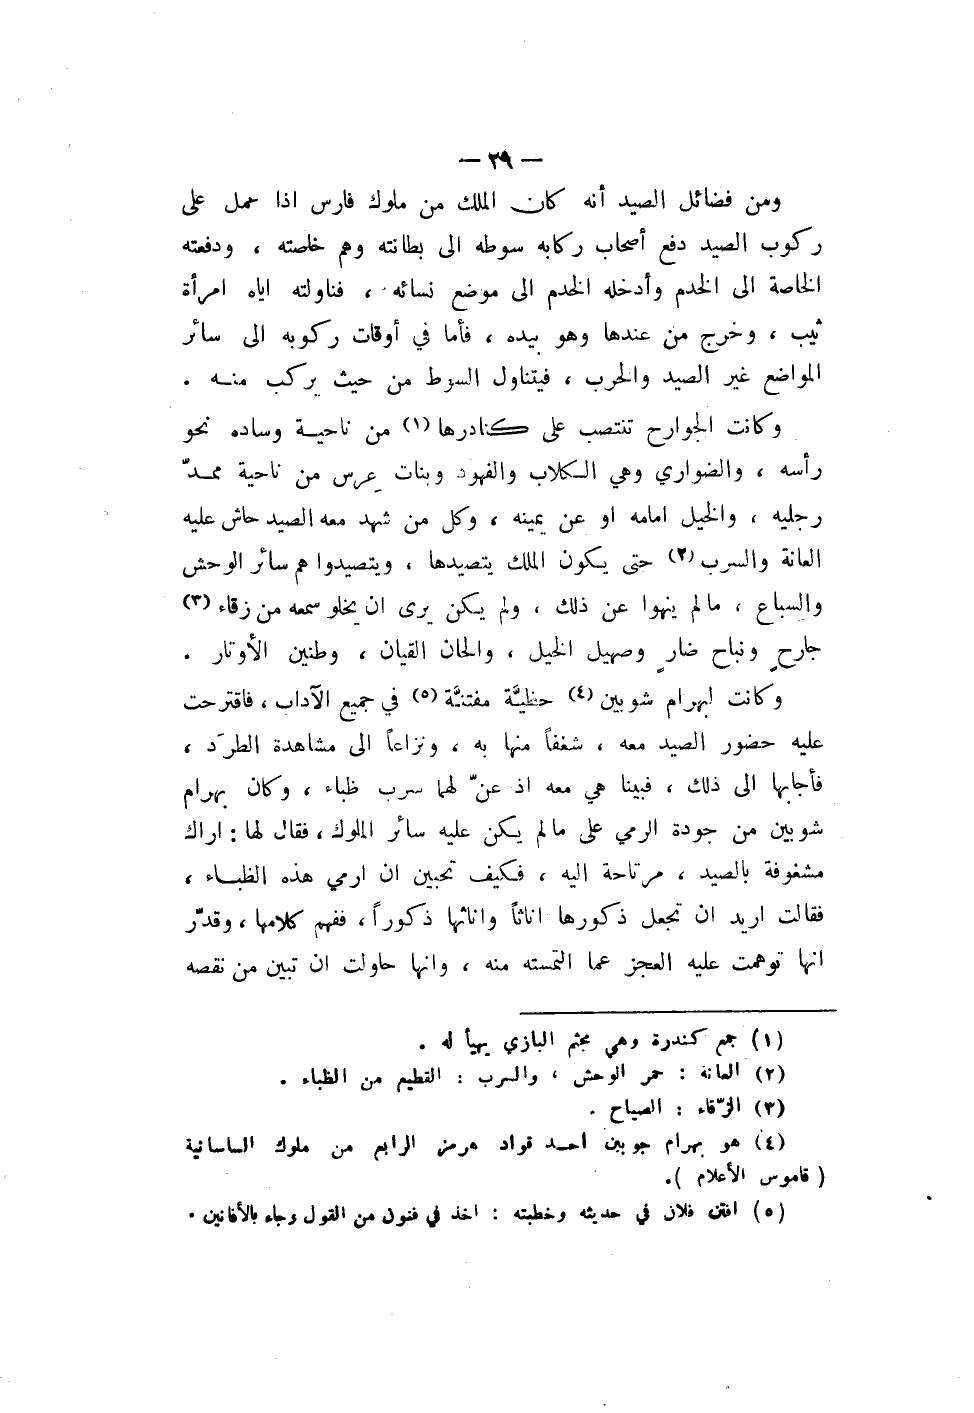 — ٢٩ —
ومن فضائل الصيد أنه كان الملك من ملوك فارس اذا عمل على
ركوب الصيد دفع أصحاب ركابه سوطه الى بطانته وهم خاصته ، ودفعته
الخاصة الى الخدم وأدخله الخدم الى موضع نسائه ، فناولته اياه امرأة
ثيب ، وخرج من عندها وهو بيده ، فأما في أوقات ركوبه الى سائر
المواضع غير الصيد والحرب ، فيتناول السوط من حيث يركب منه .
وكانت الجوارح تنتصب على كنادرها (١) من ناحية وساده نحو
رأسه ، والضواري وهي الكلاب والفهود وبنات عِرس من ناحية ممدّ
رجليه ، والخيل امامه او عن يمينه ، وكل من شهد معه الصيد حاش عليه
العانة والسرب (٢) حتى يكون الملك يتصيدها ، ويتصيدوا هم سائر الوحش
والسباع ، مالم ينهوا عن ذلك ، ولم يكن يرى ان يخلو سمعه من زقاء (٣)
جارحٍ ونباح ضارٍ وصهيل الخيل ، والحان القيان ، وطنين الأوتار .
وكانت لبهرام شوبين (٤) حظيَّة مفتنَّة (٥) في جميع الآداب ، فاقترحت
عليه حضور الصيد معه ، شغفاً منها به ، ونزاعاً الى مشاهدة الطرَد ،
فأجابها الى ذلك ، فبينا هي معه اذ عنّ لهما سرب ظباء ، وكان بهرام
شوبين من جودة الرمي على مالم يكن عليه سائر الملوك ، فقال لها : اراك
مشغوفة بالصيد ، مرتاحة اليه ، فكيف تحبين ان ارمي هذه الظباء ،
فقالت اريد ان تجعل ذكورها اناثاً واناثها ذكوراً ، ففهم كلامها ، وقدّر
انها توهمت عليه العجز عما التمسته منه ، وانها حاولت ان تبين من نقصه
(١) جمع كندرة وهي مجثم البازي يهيأ له .
(٢) العانة : حمر الوحش ، والسرب : القطيع من الظباء .
(٣) الزّقاء : الصياح .
(٤) هو بهرام جوبين احد قواد هرمز الرابع من ملوك الساسانية
( قاموس الأعلام ) .
(٥) افتن فلان في حديثه وخطبته : اخذ في فنون من القول وجاء بالأفانين .